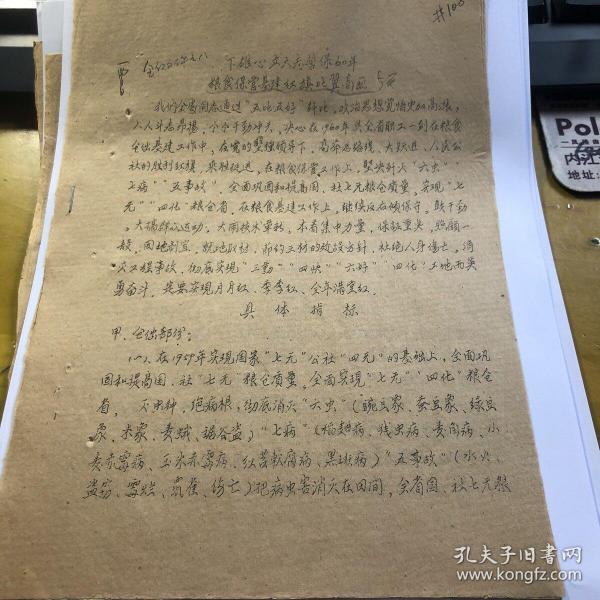 #100
下雄心立大志势保60年
粮食保管基建红旗比翼高
我们全局同志通过"五比五好"评比,政治思想觉悟空前高涨,
人人斗志昂扬,个个干劲冲天,决心在1960年与全省职工一到在粮食
仓储基建工作中,在党的坚强领导下,高举总路线、大跃进、人民公
社的胜利红旗,乘胜挺进,在粮食保管工作上,坚决歼灭"六虫"、
七病""五事故",全面巩固和提高国、社七无粮仓质量,实现"七
无""四化"粮仓省,在粮食基建工作上,继续反右倾保守,鼓干劲,
大搞群众运动,大闹技术革新,本着集中力量,保证重点,照顾一
般,因地制宜,就地取材,节约三材的政策方针,杜绝人身伤亡,消
灭工程事故,彻底实现"三勤""四快""六好""四化"工地而英
勇奋斗,提前实现月月红、季季红、全年满堂红.
具体指标
甲、仓储部份:
(一)、在1959年实现国家"七无"公社"四无"的基础上,全面巩
固和提高国、社"七无"粮仓质量,全面实现"七无""四化"粮仓
省,灭虫种,绝病根,彻底消灭"六虫"(豌豆象、蚕豆象、绿豆
象、米象、麦蛾、锯谷盗)"七病"(稻翘病、线虫病、麦角病、小
麦赤霉病、玉米赤霉病、红苕软腐病、黑斑病)"五事故"(水火、
盗窃、霉烂、鼠雀、伤亡)把病虫害消灭在田间,全省国、社七无粮
Pol
地址:
孔夫子旧书网
www.kongfz.com